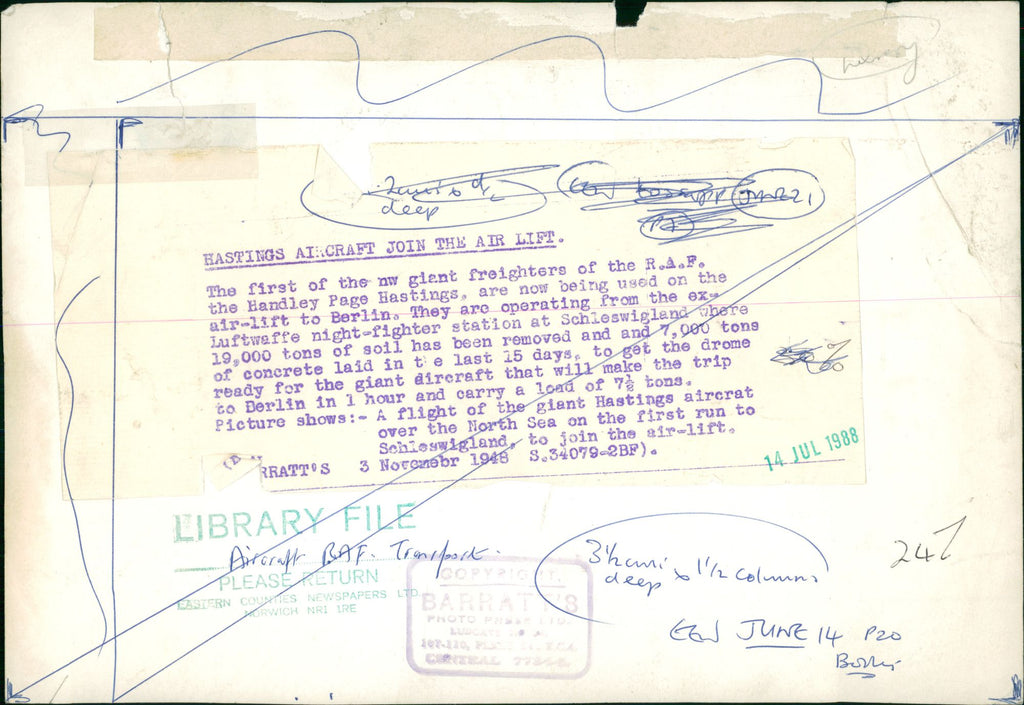 Library
deep
HASTINGS AIRCRAFT JOIN THE AIR LIFT.
The first of the nw giant freighters of the R.A.F.
the Handley Page Hastings, are now being used on the
air-lift to Berlin. They are operating from the ex-
Luftwaffe night-fighter station at Schleswigland where
19,000 tons of soil has been removed and and 7,000 tons
of concrete laid in the last 15 days, to get the drome
ready for the giant dircraft that will make the trip
to Berlin in 1 hour and carry a load of 7½ tons.
Picture shows:- A flight of the giant Hastings aircrat
over the North Sea on the first run to
Schleswigland, to join the air-lift.
RRATT'S 3 Novemebr 1948 S.34079-2BF).
14 JUL 1988
LIBRARY FILE
Aircraft RAF. Transport.
PLEASE RETURN
EASTERN COUNTIES NEWSPAPERS LTD.
NORWICH NR1 1RE
COPYRIGHT.
BARRATT'S
PHOTO PRESS LTD.
CENTRAL
3½ cms x 1 1/2 columns
deep
247
EEN JUNE 14 P20